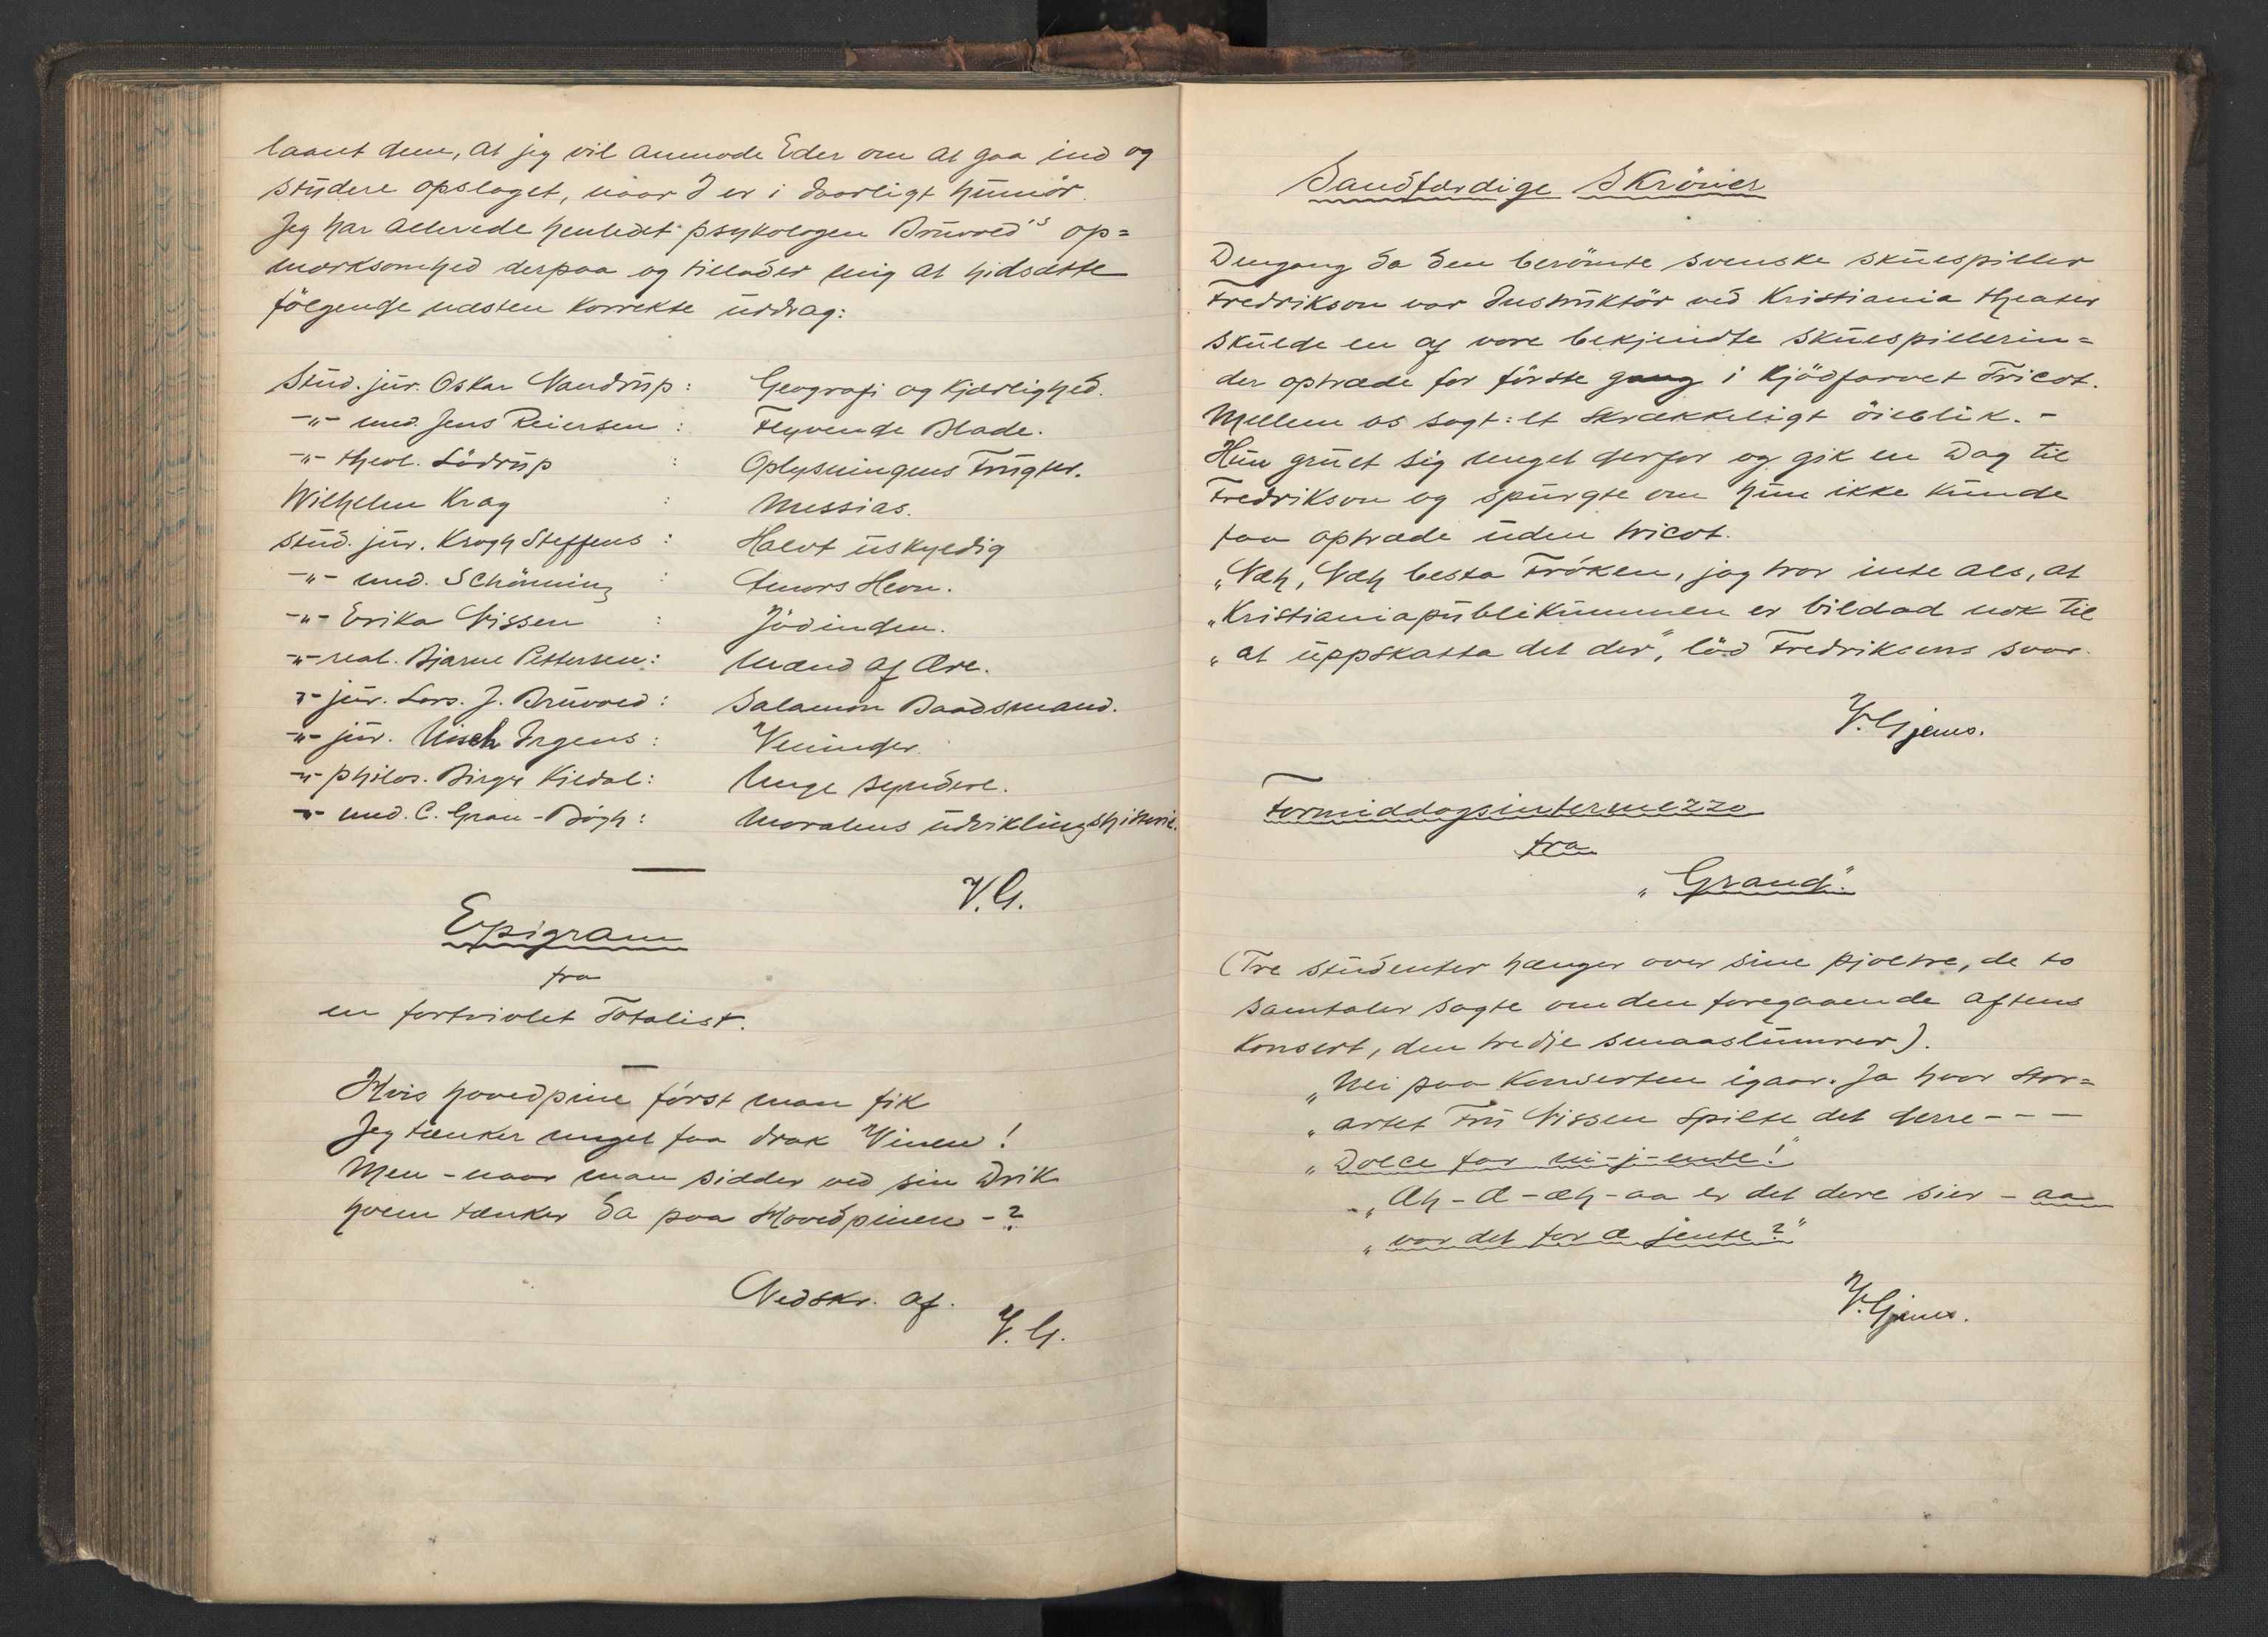 laant dem, at jeg vil anmode Eder om at gaa ind og
studere opslaget, naar I er i daarligt humör.
Jeg har allerede henledet psykologen Bruvold's op=
mærksomhed derpaa og tillader mig at hidsætte
fölgende næsten korrekte uddrag:
Stud. jur. Oskar Nandrup: Geografi og Kjærlighed.
-"- med. Jens Reiersen: Flyvende Blade.
-"- theol. Lödrup : Oplysningens Frugter.
Wilhelm Krag : Messias.
Stud. jur. Krogh Steffens: Halvt uskyldig
-"- med. Schönning : Amors Hevn.
-"- Erika Nissen : Jödinden.
-"- real. Bjarne Pettersen: Mænd af Ære.
-"- jur. Lars. J. Bruvold: Salamon Baadsmand.
-"- jur. Irgens: Veninder.
-"- philos. Birger Kildal: Unge syndere.
-"- med. C. Gran-Bögh: Moralens udviklingshistorie.
V.G.
Epigram
fra
en fortvivlet Totalist.
Hvis hovedpine först man fik
Jeg tænker meget faa drak Vinen!
Men - naar man sidder ved sin Drik
hvem tænker da paa Hovedpinen - ?
Nedskr. af.
V.G.
Sandfærdige Skröner
Dengang da den berömte svenske skuespiller
Fredrikson var Instruktör ved Kristiania theater
skulde en af vore bekjendte skuespillerin=
der optræde for förste gang i kjödfarvet Tricot.
Mellem os sagt: et skrækkeligt öieblik. -
Hun gruet sig meget derfor og gik en Dag til
Fredrikson og spurgte om hun ikke kunde
faa optræde uden tricot.
"Næh, Næh besta Fröken, jag tror inte als, at
"Kristianiapublikummen er bildad nok til
"at uppskatta det der", löd Fredriksons svar.
V. Gjems.
Formiddagsintermezzo
fra
"Grand".
(Tre studenter hænger over sine pjoltre, de to
samtaler sagte om den foregaaende aftens
konsert, den tredje smaaslumrer).
"Nei paa Konserten igaar. Ja hvor stor=
"artet Fru Nissen spilte det derre - - -
"Dolce far ni-j-ente!"
- "Æh - æ - æh - aa er det dere sier - aa
"var det for æ jente?"
V. Gjems.